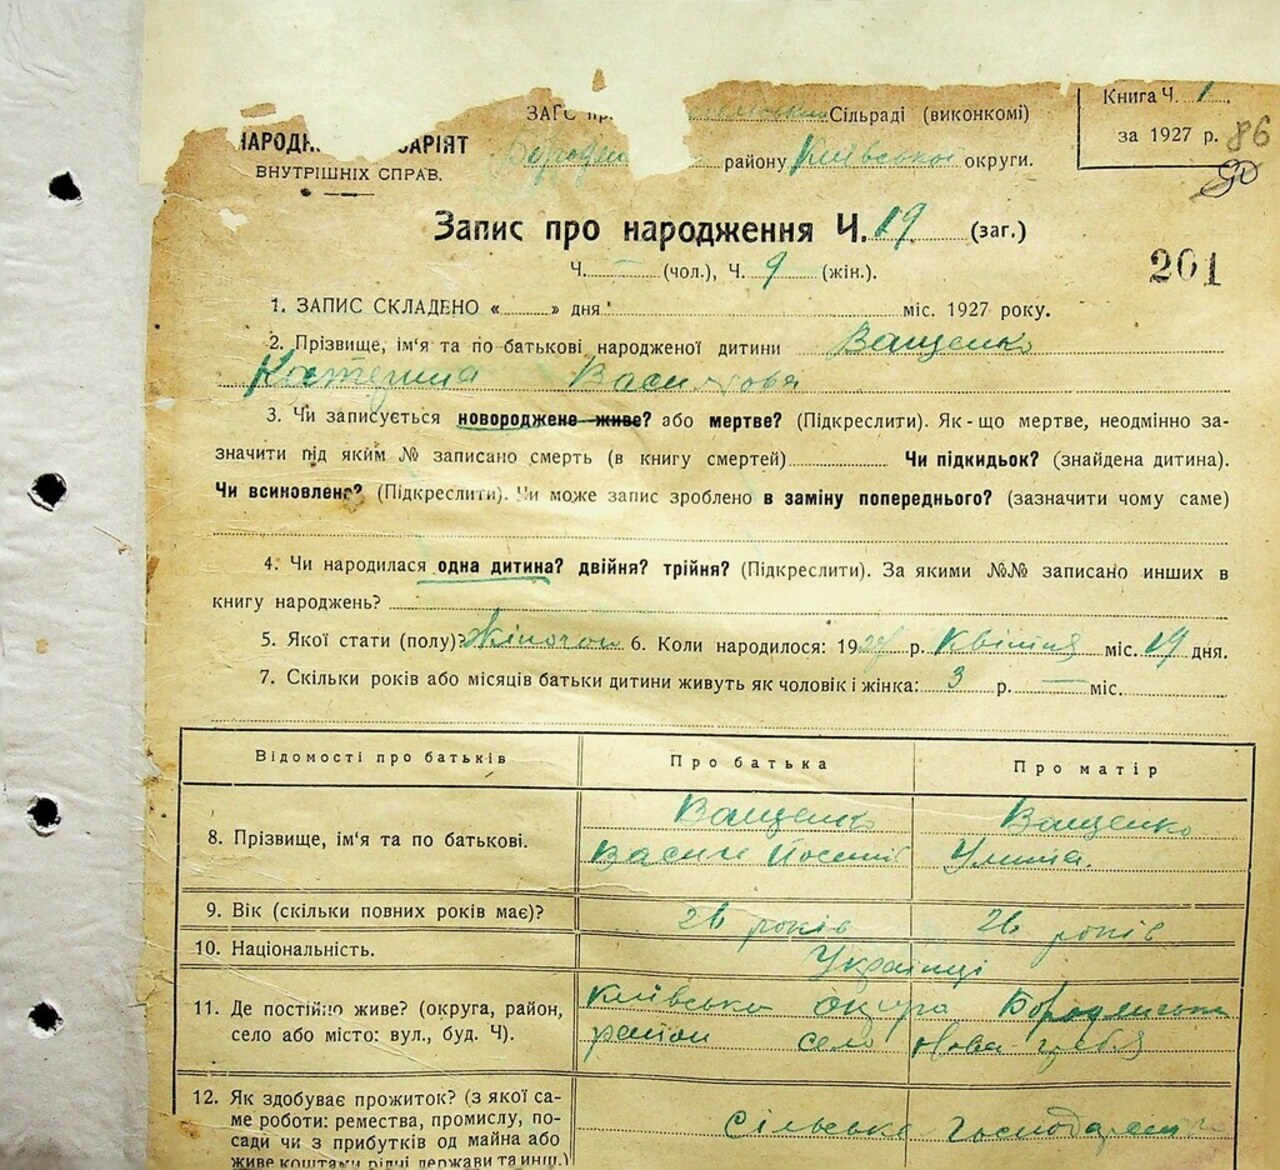 ЗАГС Сільраді (виконкомі)
Книга Ч. 1
ВНУТРІШНІХ СПРАВ.
району Київської округи.
за 1927 р. 86
Запис про народження Ч. 19 (заг.)
Ч. – (чол.), Ч. 9 (жін.).
201
1. ЗАПИС СКЛАДЕНО « » дня міс. 1927 року.
2. Прізвище, ім'я та по батькові народженої дитини Ващенко
Катерина
3. Чи записується новороджене живе? або мертве? (Підкреслити). Як-що мертве, неодмінно за-
значити під яким № записано смерть (в книгу смертей) Чи підкидьок? (знайдена дитина).
Чи всиновлено? (Підкреслити). Чи може запис зроблено в заміну попереднього? (зазначити чому саме)
4. Чи народилася одна дитина? двійня? трійня? (Підкреслити). За якими №№ записано инших в
книгу народжень?
5. Якої стати (полу)? 6. Коли народилося: 1927 р. Квітня міс. 19 дня.
7. Скільки років або місяців батьки дитини живуть як чоловік і жінка: 3 р. — міс.
Відомості про батьків Про батька Про матір
8. Прізвище, ім'я та по батькові. Ващенко Ващенко
9. Вік (скільки повних років має)? 26 років 26 років
10. Національність. Українці
11. Де постійно живе? (округа, район, Київська округа Бородянський
село або місто: вул., буд. Ч). район село Нова-Гребля
12. Як здобуває прожиток? (з якої са-
ме роботи: ремества, промислу, по-
сади чи з прибутків од майна або
живе коштами рідні держави та инш.)
Сільське господарство